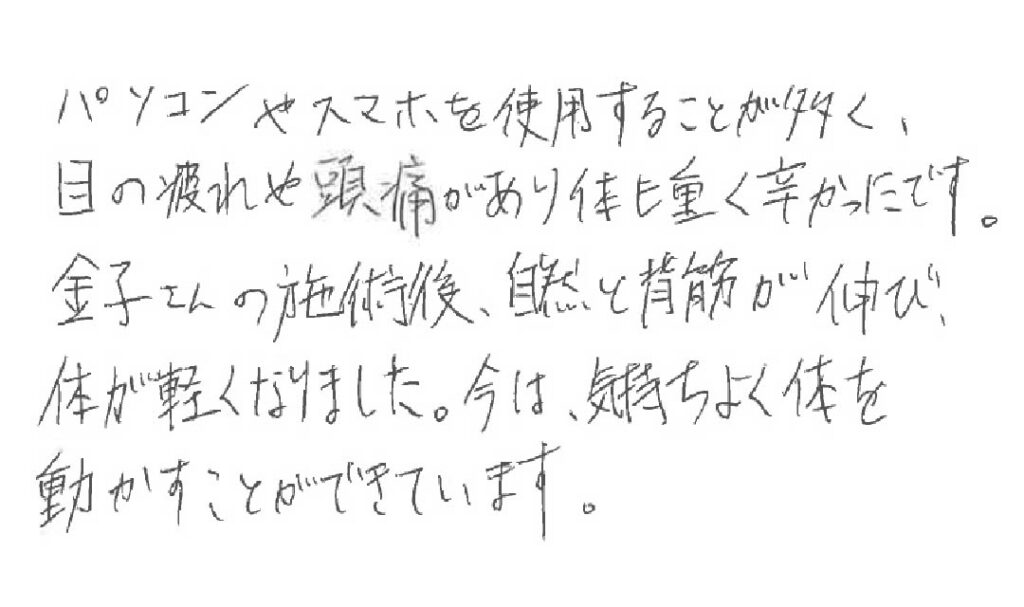 パソコンやスマホを使用することが多く、
目の疲れや頭痛があり体も重く辛かったです。
金子さんの施術後、自然と背筋が伸び、
体が軽くなりました。今は、気持ちよく体を
動かすことができています。